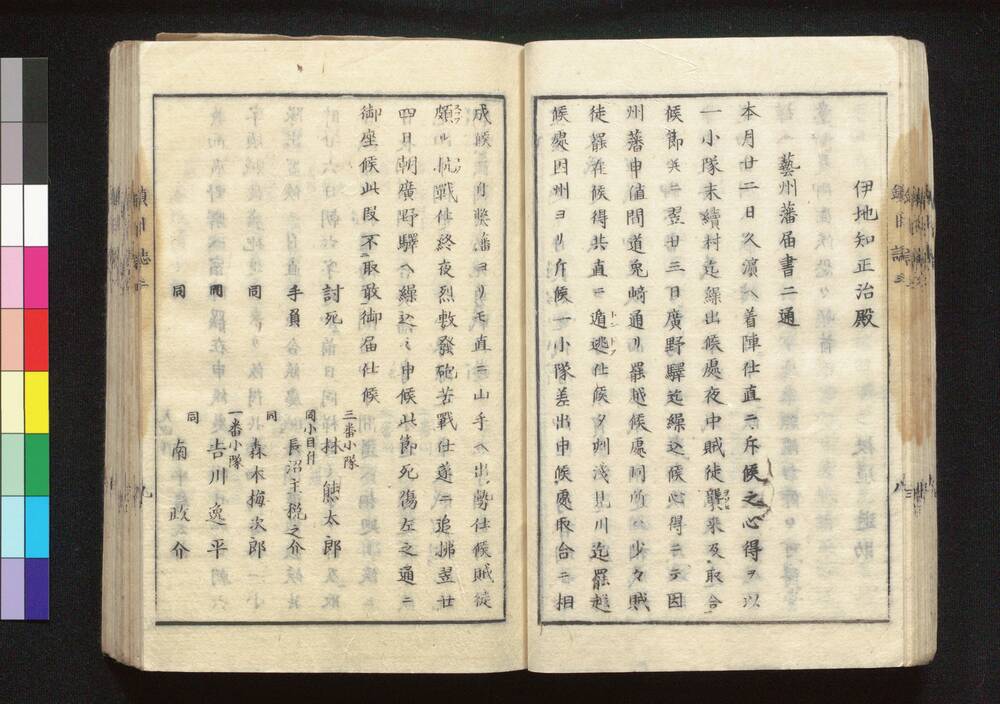 伊地知正治殿
藝州藩届書二通
本月廿二日久濱ヘ着陣仕直ニ斥候之心得ヲ以
一小隊末續村迄繰出候處夜中賊徒襲来及取合
候節共ニ翌廿三日廣野驛迄繰込候心得ニテ因
州藩申値間道兎﨑通リ罷越候處同所ヘ少々賊
徒罷在候得共直ニ遁逃仕候夕刈淺見川迄罷越
候處因州ヨリ斥候一小隊差出申候處取合ニ相
成候ニ付弊藩ヨリモ直ニ山手ヘ出勢仕候賊徒
頗ル抗戰仕終夜烈敷發砲苦戰仕遂ニ追拂翌廿
四日朝廣野驛ヘ繰込ミ申候此節死傷左之通ニ
御座候此段不取敢御届仕候
討死 三番小隊 林熊太郎
手負 同小目付 長沼主税之介
同 同 森本梅次郎
同 一番小隊 吉川逸平
同 同 南政介